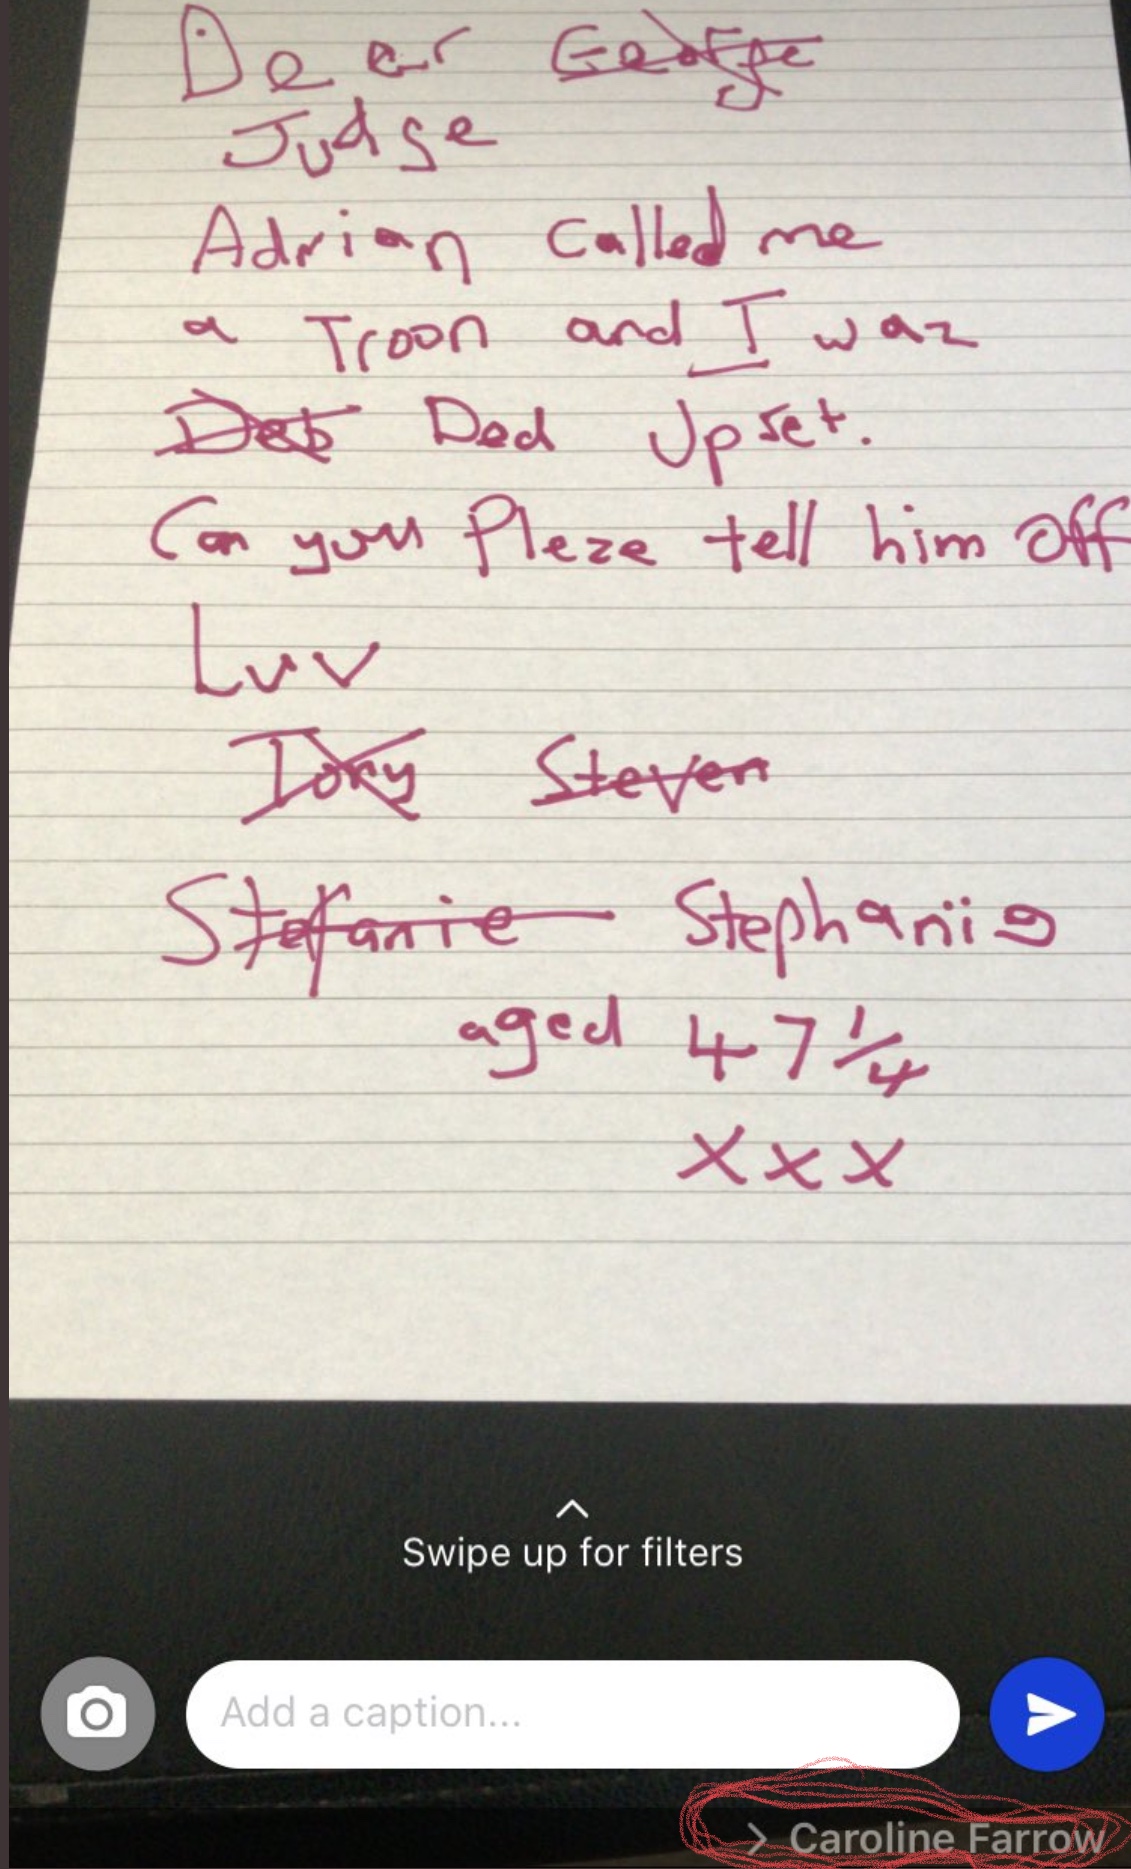 Dear George
Judge
Adrian Called me
a Troon and I waz
Deb Ded Upset.
Can you Pleze tell him off
Luv
Tony Steven
Stefanie Stephanie
aged 47 1/4
xxx
Swipe up for filters
Add a caption...
> Caroline Farrow